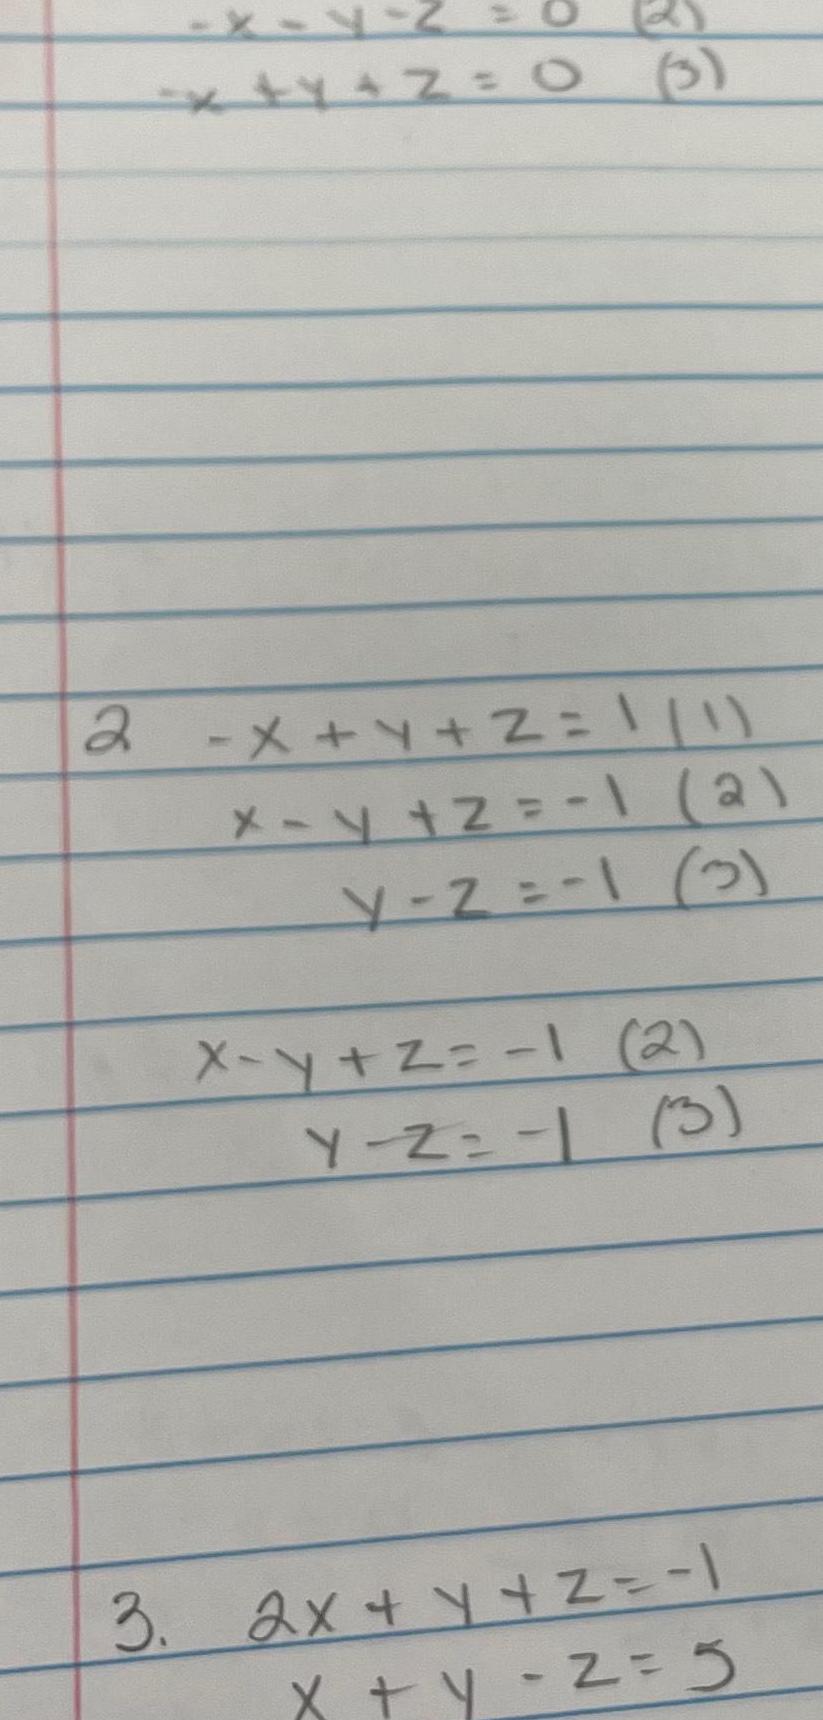 -x - y - z = 0 (2)
-x + y + z = 0 (3)
2 -x + y + z = 1 (1)
x - y + z = -1 (2)
y - z = -1 (3)
x - y + z = -1 (2)
y - z = -1 (3)
3. 2x + y + z = -1
x + y - z = 5